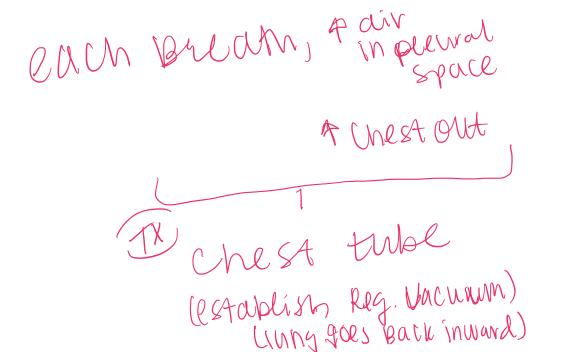 each breath, ↑ air
in pleural
space
↑ chest out
TX
chest tube
(establish Reg. Vacuum)
(lung goes back inward)